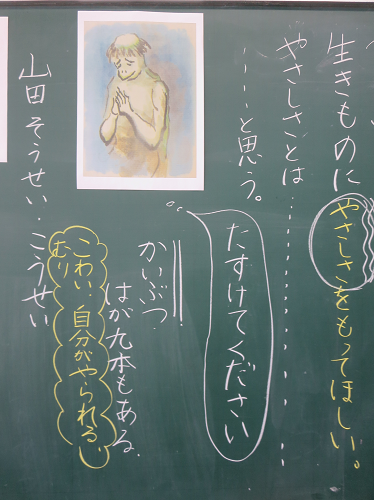 生きものにやさしさをもってほしい。
やさしさとは…………
……と思う。
たすけてください
かいぶつ
はが九本もある
こわい、自分がやられる、
むり
山田そうせい・こうせい